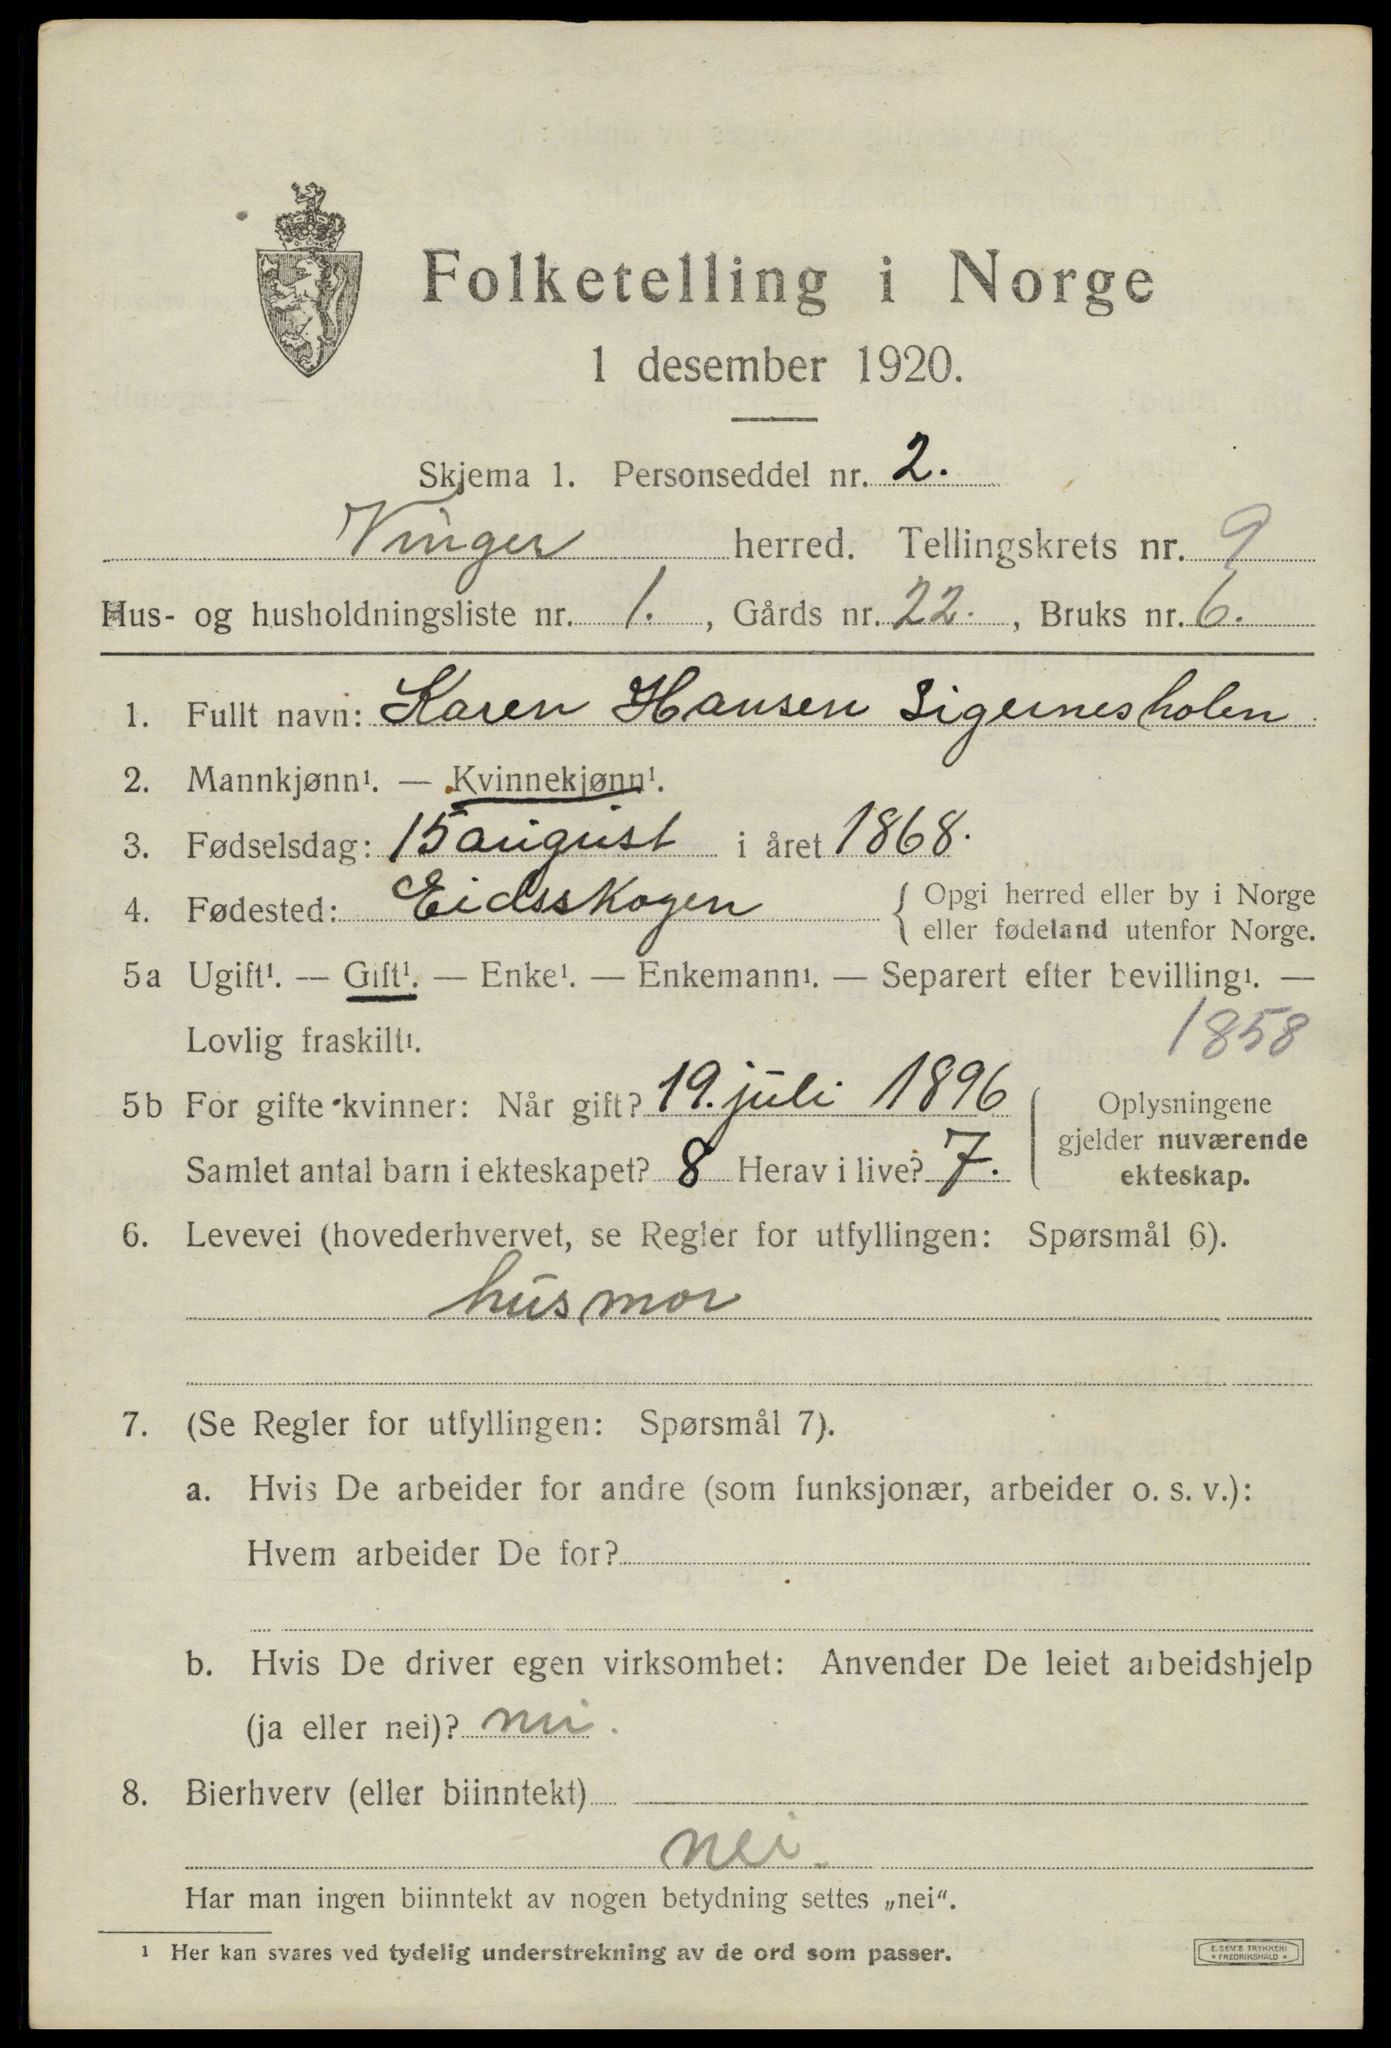 Folketelling i Norge
1 desember 1920.
Skjema 1. Personseddel nr. 2.
Vinger herred. Tellingskrets nr. 9
Hus- og husholdningsliste nr. 1. , Gårds nr. 22. , Bruks nr. 6.
1. Fullt navn: Karen Hansen Sigernesholen
2. Mannkjønn¹. — Kvinnekjønn¹.
3. Fødselsdag: 15 august i året 1868.
4. Fødested: Eidsskogen { Opgi herred eller by i Norge
eller fødeland utenfor Norge.
5a Ugift¹. — Gift¹. — Enke¹. — Enkemann¹. — Separert efter bevilling¹. —
Lovlig fraskilt¹. 1858
5b For gifte kvinner: Når gift? 19. juli 1896
Samlet antal barn i ekteskapet? 8 Herav i live? 7.
Oplysningene
gjelder nuværende
ekteskap.
6. Levevei (hovederhvervet, se Regler for utfyllingen: Spørsmål 6).
husmor
7. (Se Regler for utfyllingen: Spørsmål 7).
a. Hvis De arbeider for andre (som funksjonær, arbeider o. s. v.):
Hvem arbeider De for?
b. Hvis De driver egen virksomhet: Anvender De leiet arbeidshjelp
(ja eller nei)? nei.
8. Bierhverv (eller biinntekt)
nei.
Har man ingen biinntekt av nogen betydning settes „nei“.
¹ Her kan svares ved tydelig understrekning av de ord som passer.
E. SEM'S TRYKKERI
• FREDRIKSHALD •